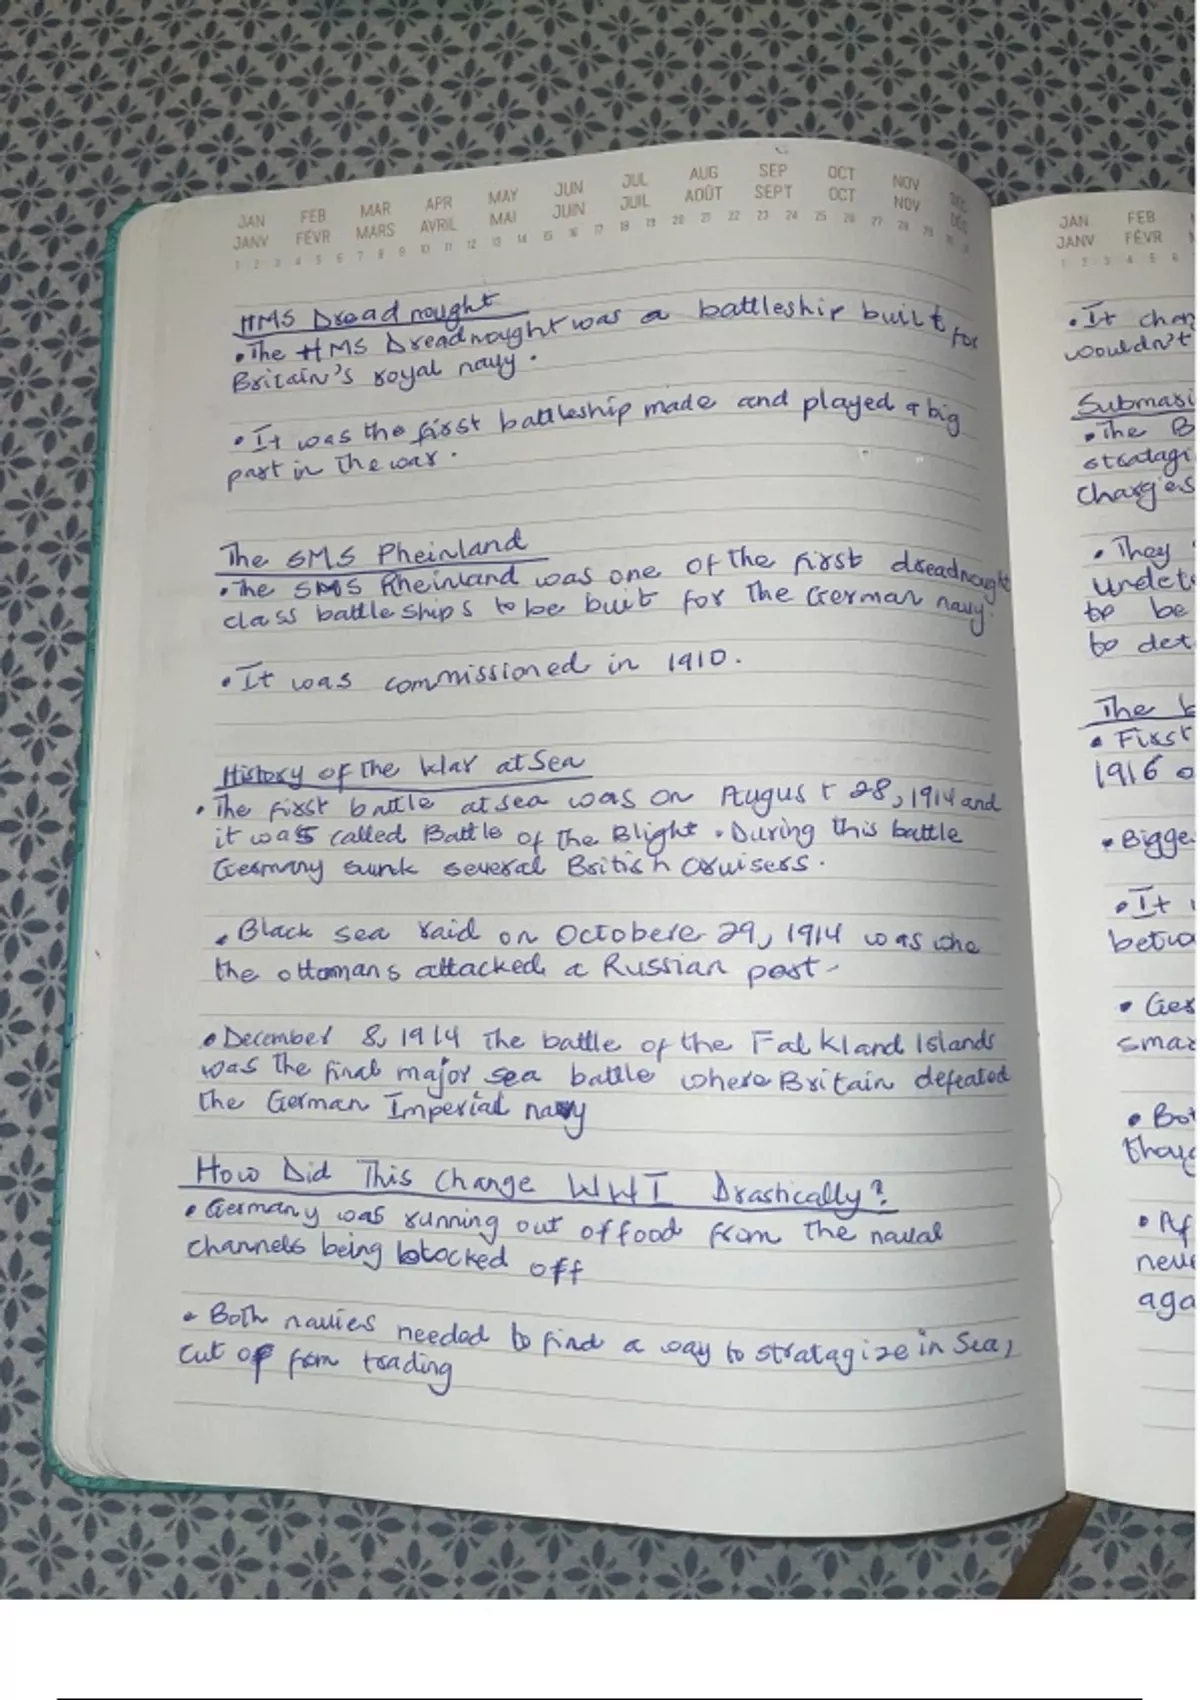 JAN FEB MAR APR MAY JUN JUL AUG SEP OCT NOV DEC
JANV FÉVR MARS AVRIL MAI JUIN JUIL AOÛT SEPT OCT NOV DÉC
1 2 3 4 5 6 7 8 9 10 11 12 13 14 15 16 17 18 19 20 21 22 23 24 25 26 27 28 29 30 31
HMS Dreadnought
• The HMS Dreadnought was a battleship built for
Britain's royal navy.
• It was the first battleship made and played a big
part in the war.
The SMS Pheinland
• The SMS Rheinland was one of the first dreadnought
class battleships to be built for the German navy.
• It was commissioned in 1910.
History of the War at Sea
• The first battle at sea was on August 28, 1914 and
it was called Battle of the Blight. During this battle
Germany sunk several British cruisers.
• Black sea raid on Octobere 29, 1914 was whe
the ottomans attacked a Russian post.
• December 8, 1914 The battle of the Falkland Islands
was the final major sea battle where Britain defeated
the German Imperial navy
How Did This Change WWI Drastically?
• Germany was running out of food from the naval
channels being blocked off
• Both navies needed to find a way to stratagize in Sea,
cut of from trading
JAN FEB
JANV FÉVR
1 2 3 4 5 6
• It chan
wouldn't
Submari
• The B
stratagi
charges
• They
undete
to be
to det
The b
• First
1916 o
• Bigge
• It
betwe
• Ger
smaz
• Bot
thoug
• Af
neve
aga